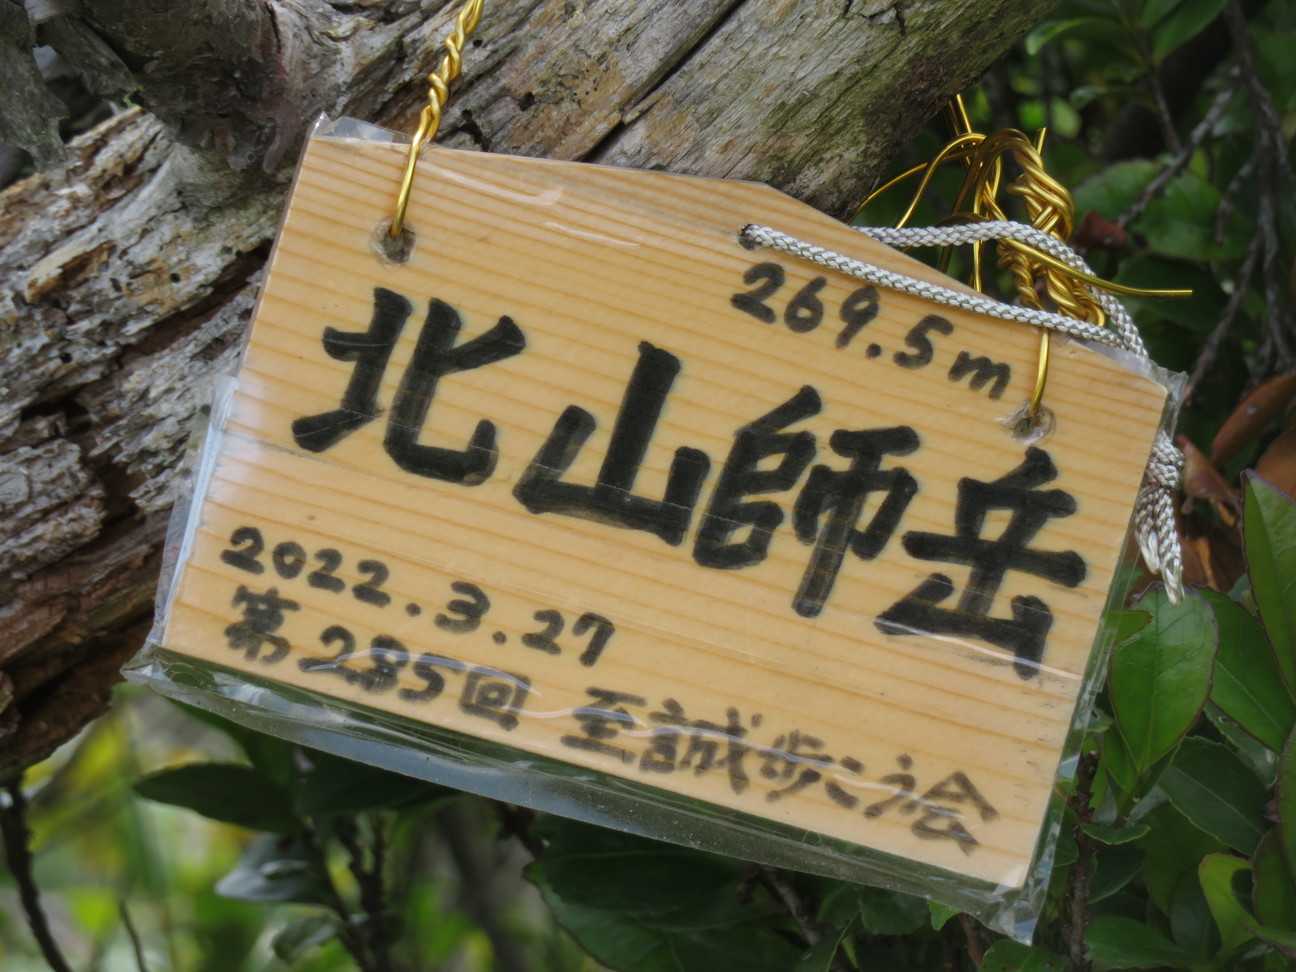 269.5m
北山師岳
2022.3.27
第285回 至誠歩こう会